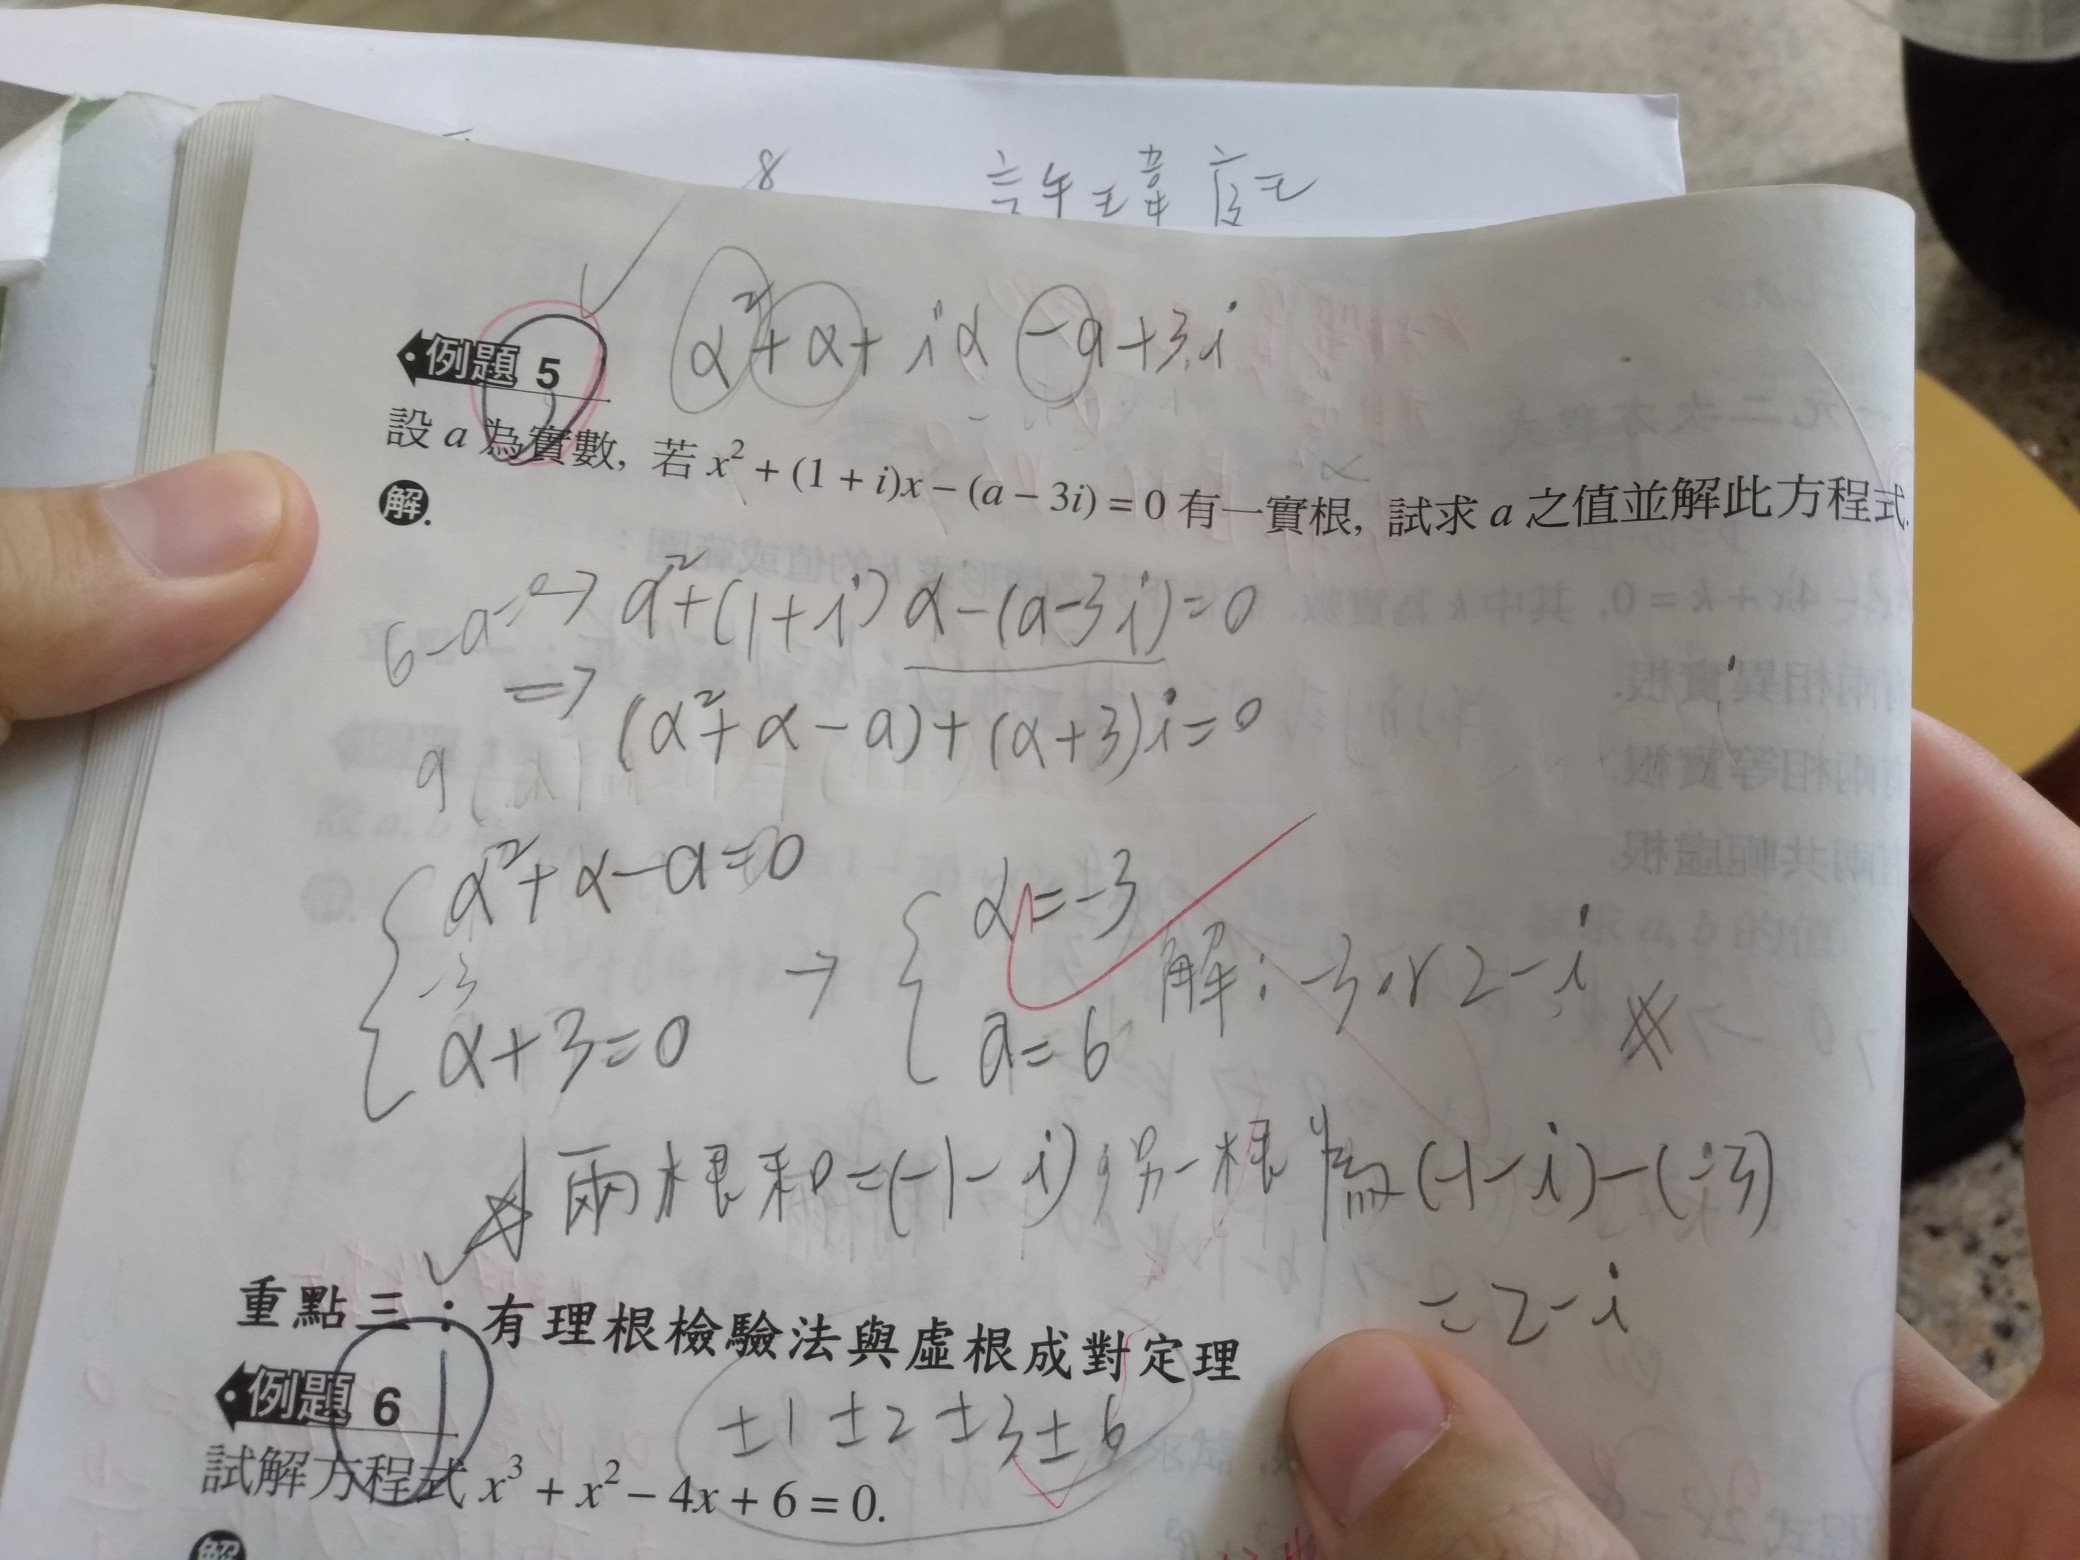 8
α²+α+iα-a+3i
例題 5
設 a 為實數, 若 x² + (1 + i)x − (a − 3i) = 0 有一實根, 試求 a 之值並解此方程式.
解.
6-a=0→ α²+(1+i)α-(a-3i)=0
=> (α²+α-a)+(α+3)i=0
9
α²+α-a=0
-3
α+3=0
→
α=-3
a=6
解:-3 or 2-i
兩根和=(-1-i),另一根為(-1-i)-(-3)
=2-i
重點三:有理根檢驗法與虛根成對定理
例題 6
±1 ±2 ±3 ±6
試解方程式 x³ + x² − 4x + 6 = 0.
解